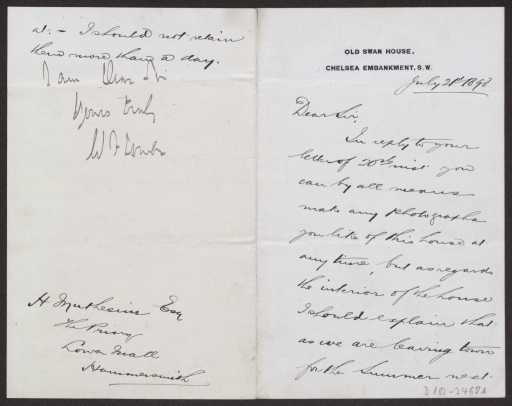 OLD SWAN HOUSE,
CHELSEA EMBANKMENT, S.W.
July 21st 1898
Dear Sir,
In reply to your
letter of 20th inst you
can by all means
make any photographs
you like of this house at
any time, but as regards
the interior of the house
I should explain that
as we are leaving town
for the Summer next
at. - I should not retain
them more than a day.
I am Dear Sir
Yours truly
H Muthesius Esq
The Priory
Lower Mall
Hammersmith